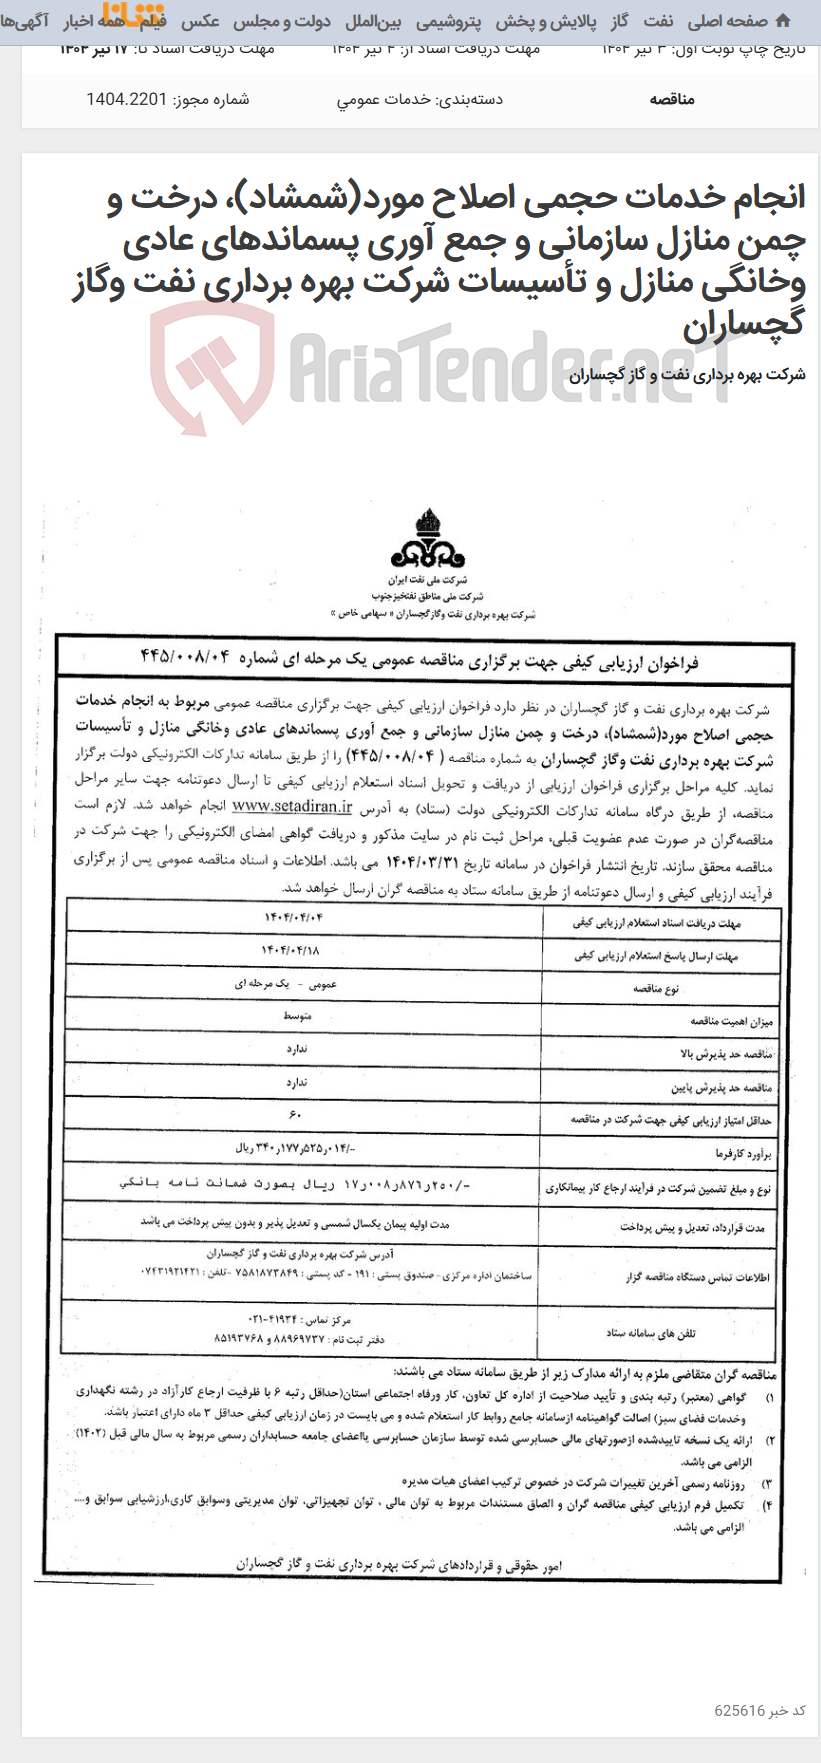 صفحه اصلی نفت گاز پالایش و پخش پتروشیمی بین‌الملل دولت و مجلس عکس فیلم همه اخبار آگهی‌ها
شانا
تاریخ چاپ نوبت اول: ۳ تیر ۱۴۰۴ مهلت دریافت اسناد از: ۴ تیر ۱۴۰۴ مهلت دریافت اسناد تا: ۱۷ تیر ۱۴۰۴
مناقصه دسته‌بندی: خدمات عمومي شماره مجوز: 1404.2201
انجام خدمات حجمی اصلاح مورد(شمشاد)، درخت و
چمن منازل سازمانی و جمع آوری پسماندهای عادی
وخانگی منازل و تأسیسات شرکت بهره برداری نفت وگاز
گچساران
AriaTender.neT
شرکت بهره برداری نفت و گاز گچساران
شرکت ملی نفت ایران
شرکت ملی مناطق نفتخیزجنوب
شرکت بهره برداری نفت وگاز گچساران « سهامی خاص »
فراخوان ارزیابی کیفی جهت برگزاری مناقصه عمومی یک مرحله ای شماره ۴۴۵/۰۰۸/۰۴
شرکت بهره برداری نفت و گاز گچساران در نظر دارد فراخوان ارزیابی کیفی جهت برگزاری مناقصه عمومی مربوط به انجام خدمات
حجمی اصلاح مورد(شمشاد)، درخت و چمن منازل سازمانی و جمع آوری پسماندهای عادی وخانگی منازل و تأسیسات
شرکت بهره برداری نفت وگاز گچساران به شماره مناقصه ( ۴۴۵/۰۰۸/۰۴) را از طریق سامانه تدارکات الکترونیکی دولت برگزار
نماید. کلیه مراحل برگزاری فراخوان ارزیابی از دریافت و تحویل اسناد استعلام ارزیابی کیفی تا ارسال دعوتنامه جهت سایر مراحل
مناقصه، از طریق درگاه سامانه تدارکات الکترونیکی دولت (ستاد) به آدرس www.setadiran.ir انجام خواهد شد. لازم است
مناقصه‌گران در صورت عدم عضویت قبلی، مراحل ثبت نام در سایت مذکور و دریافت گواهی امضای الکترونیکی را جهت شرکت در
مناقصه محقق سازند. تاریخ انتشار فراخوان در سامانه تاریخ ۱۴۰۴/۰۳/۳۱ می باشد. اطلاعات و اسناد مناقصه عمومی پس از برگزاری
فرآیند ارزیابی کیفی و ارسال دعوتنامه از طریق سامانه ستاد به مناقصه گران ارسال خواهد شد.
مهلت دریافت اسناد استعلام ارزیابی کیفی ۱۴۰۴/۰۴/۰۴
مهلت ارسال پاسخ استعلام ارزیابی کیفی ۱۴۰۴/۰۴/۱۸
نوع مناقصه عمومی - یک مرحله ای
میزان اهمیت مناقصه متوسط
مناقصه حد پذیرش بالا ندارد
مناقصه حد پذیرش پایین ندارد
حداقل امتیاز ارزیابی کیفی جهت شرکت در مناقصه ۶۰
برآورد کارفرما ۳۴۰٫۱۷۷٫۵۲۵٫۰۱۴/- ریال
نوع و مبلغ تضمین شرکت در فرآیند ارجاع کار پیمانکاری ۱۷٫۰۰۸٫۸۷۶٫۲۵۰/- ریال بصورت ضمانت نامه بانکی
مدت قرارداد، تعدیل و پیش پرداخت مدت اولیه پیمان یکسال شمسی و تعدیل پذیر و بدون پیش پرداخت می باشد
اطلاعات تماس دستگاه مناقصه گزار آدرس شرکت بهره برداری نفت و گاز گچساران
ساختمان اداره مرکزی - صندوق پستی : ۱۹۱ - کد پستی : ۷۵۸۱۸۷۳۸۴۹ -تلفن : ۰۷۴۳۱۹۲۱۴۲۱
تلفن های سامانه ستاد مرکز تماس : ۴۱۹۳۴-۰۲۱
دفتر ثبت نام : ۸۸۹۶۹۷۳۷ و ۸۵۱۹۳۷۶۸
مناقصه گران متقاضی ملزم به ارائه مدارک زیر از طریق سامانه ستاد می باشند:
۱) گواهی (معتبر) رتبه بندی و تأیید صلاحیت از اداره کل تعاون، کار ورفاه اجتماعی استان(حداقل رتبه ۶ با ظرفیت ارجاع کارآزاد در رشته نگهداری
وخدمات فضای سبز) اصالت گواهینامه ازسامانه جامع روابط کار استعلام شده و می بایست در زمان ارزیابی کیفی حداقل ۳ ماه دارای اعتبار باشد.
۲) ارائه یک نسخه تاییدشده ازصورتهای مالی حسابرسی شده توسط سازمان حسابرسی یااعضای جامعه حسابداران رسمی مربوط به سال مالی قبل (۱۴۰۲)
الزامی می باشد.
۳) روزنامه رسمی آخرین تغییرات شرکت در خصوص ترکیب اعضای هیات مدیره
۴) تکمیل فرم ارزیابی کیفی مناقصه گران و الصاق مستندات مربوط به توان مالی ، توان تجهیزاتی، توان مدیریتی وسوابق کاری،ارزشیابی سوابق و....
الزامی می باشد.
امور حقوقی و قراردادهای شرکت بهره برداری نفت و گاز گچساران
کد خبر 625616